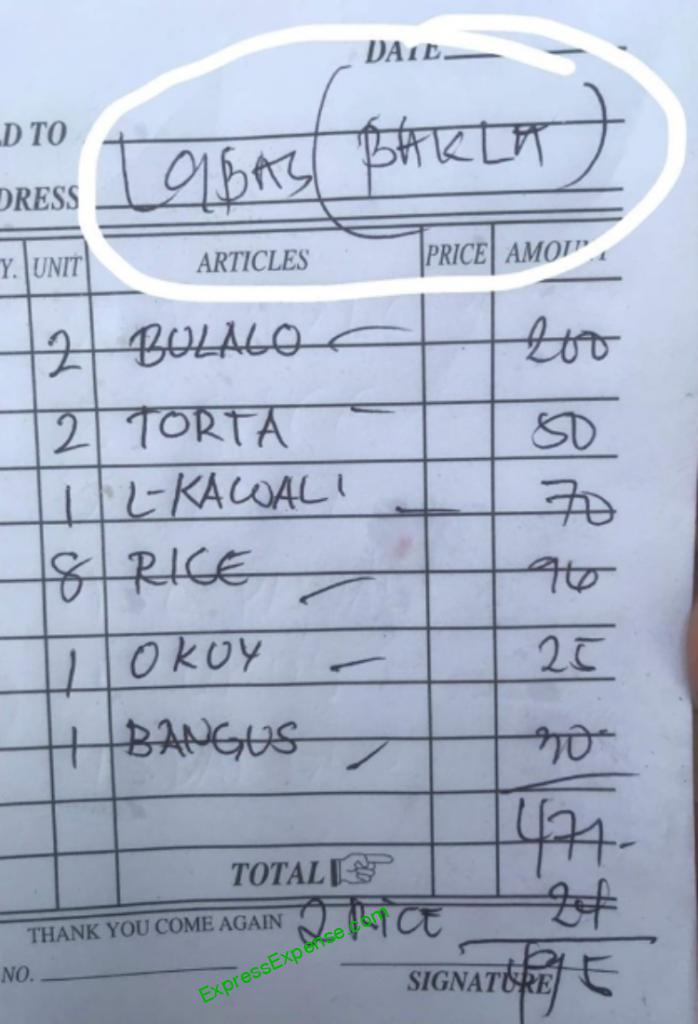 DATE
D TO LABAS (BAKLA)
DRESS
Y. UNIT ARTICLES PRICE AMOUNT
2 BULALO 200
2 TORTA 50
1 L-KAWALI 70
8 RICE 96
1 OKOY 25
1 BANGUS 30
471-
TOTAL
2 RICE 24
THANK YOU COME AGAIN
495
NO. SIGNATURE
ExpressExpense.com